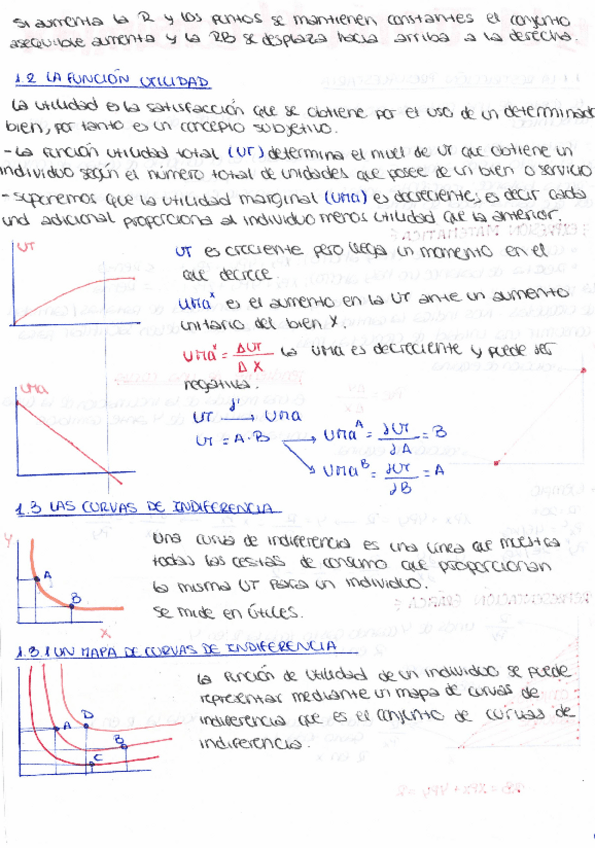 Si aumenta la R y los puntos se mantienen constantes el conjunto
asequible aumenta y la RB se desplaza hacia arriba a la derecha.
1.2 LA FUNCIÓN UTILIDAD
La utilidad es la satisfacción que se obtiene por el uso de un determinado
bien, por tanto es un concepto subjetivo.
- La función utilidad total (UT) determina el nivel de UT que obtiene un
individuo según el número total de unidades que posee de un bien o servicio
- Suponemos que la utilidad marginal (UMa) es decreciente, es decir cada
und adicional proporciona al individuo menos utilidad que la anterior.
UT
UT es creciente pero llega un momento en el
que decrece.
UMaˣ es el aumento en la UT ante un aumento
unitario del bien X.
UMaˣ = ΔUT / ΔX La UMa es decreciente y puede ser
negativa.
UMa
UT → UMa
UT = A·B
UMaᴬ = ∂UT / ∂A = B
UMaᴮ = ∂UT / ∂B = A
1.3 LAS CURVAS DE INDIFERENCIA
Y
A
B
X
Una curva de indiferencia es una línea que muestra
todas las cestas de consumo que proporcionan
la misma UT para un individuo.
Se mide en útiles.
1.3.1 UN MAPA DE CURVAS DE INDIFERENCIA
A
D
B
C
La función de utilidad de un individuo se puede
representar mediante un mapa de curvas de
indiferencia que es el conjunto de curvas de
indiferencia.